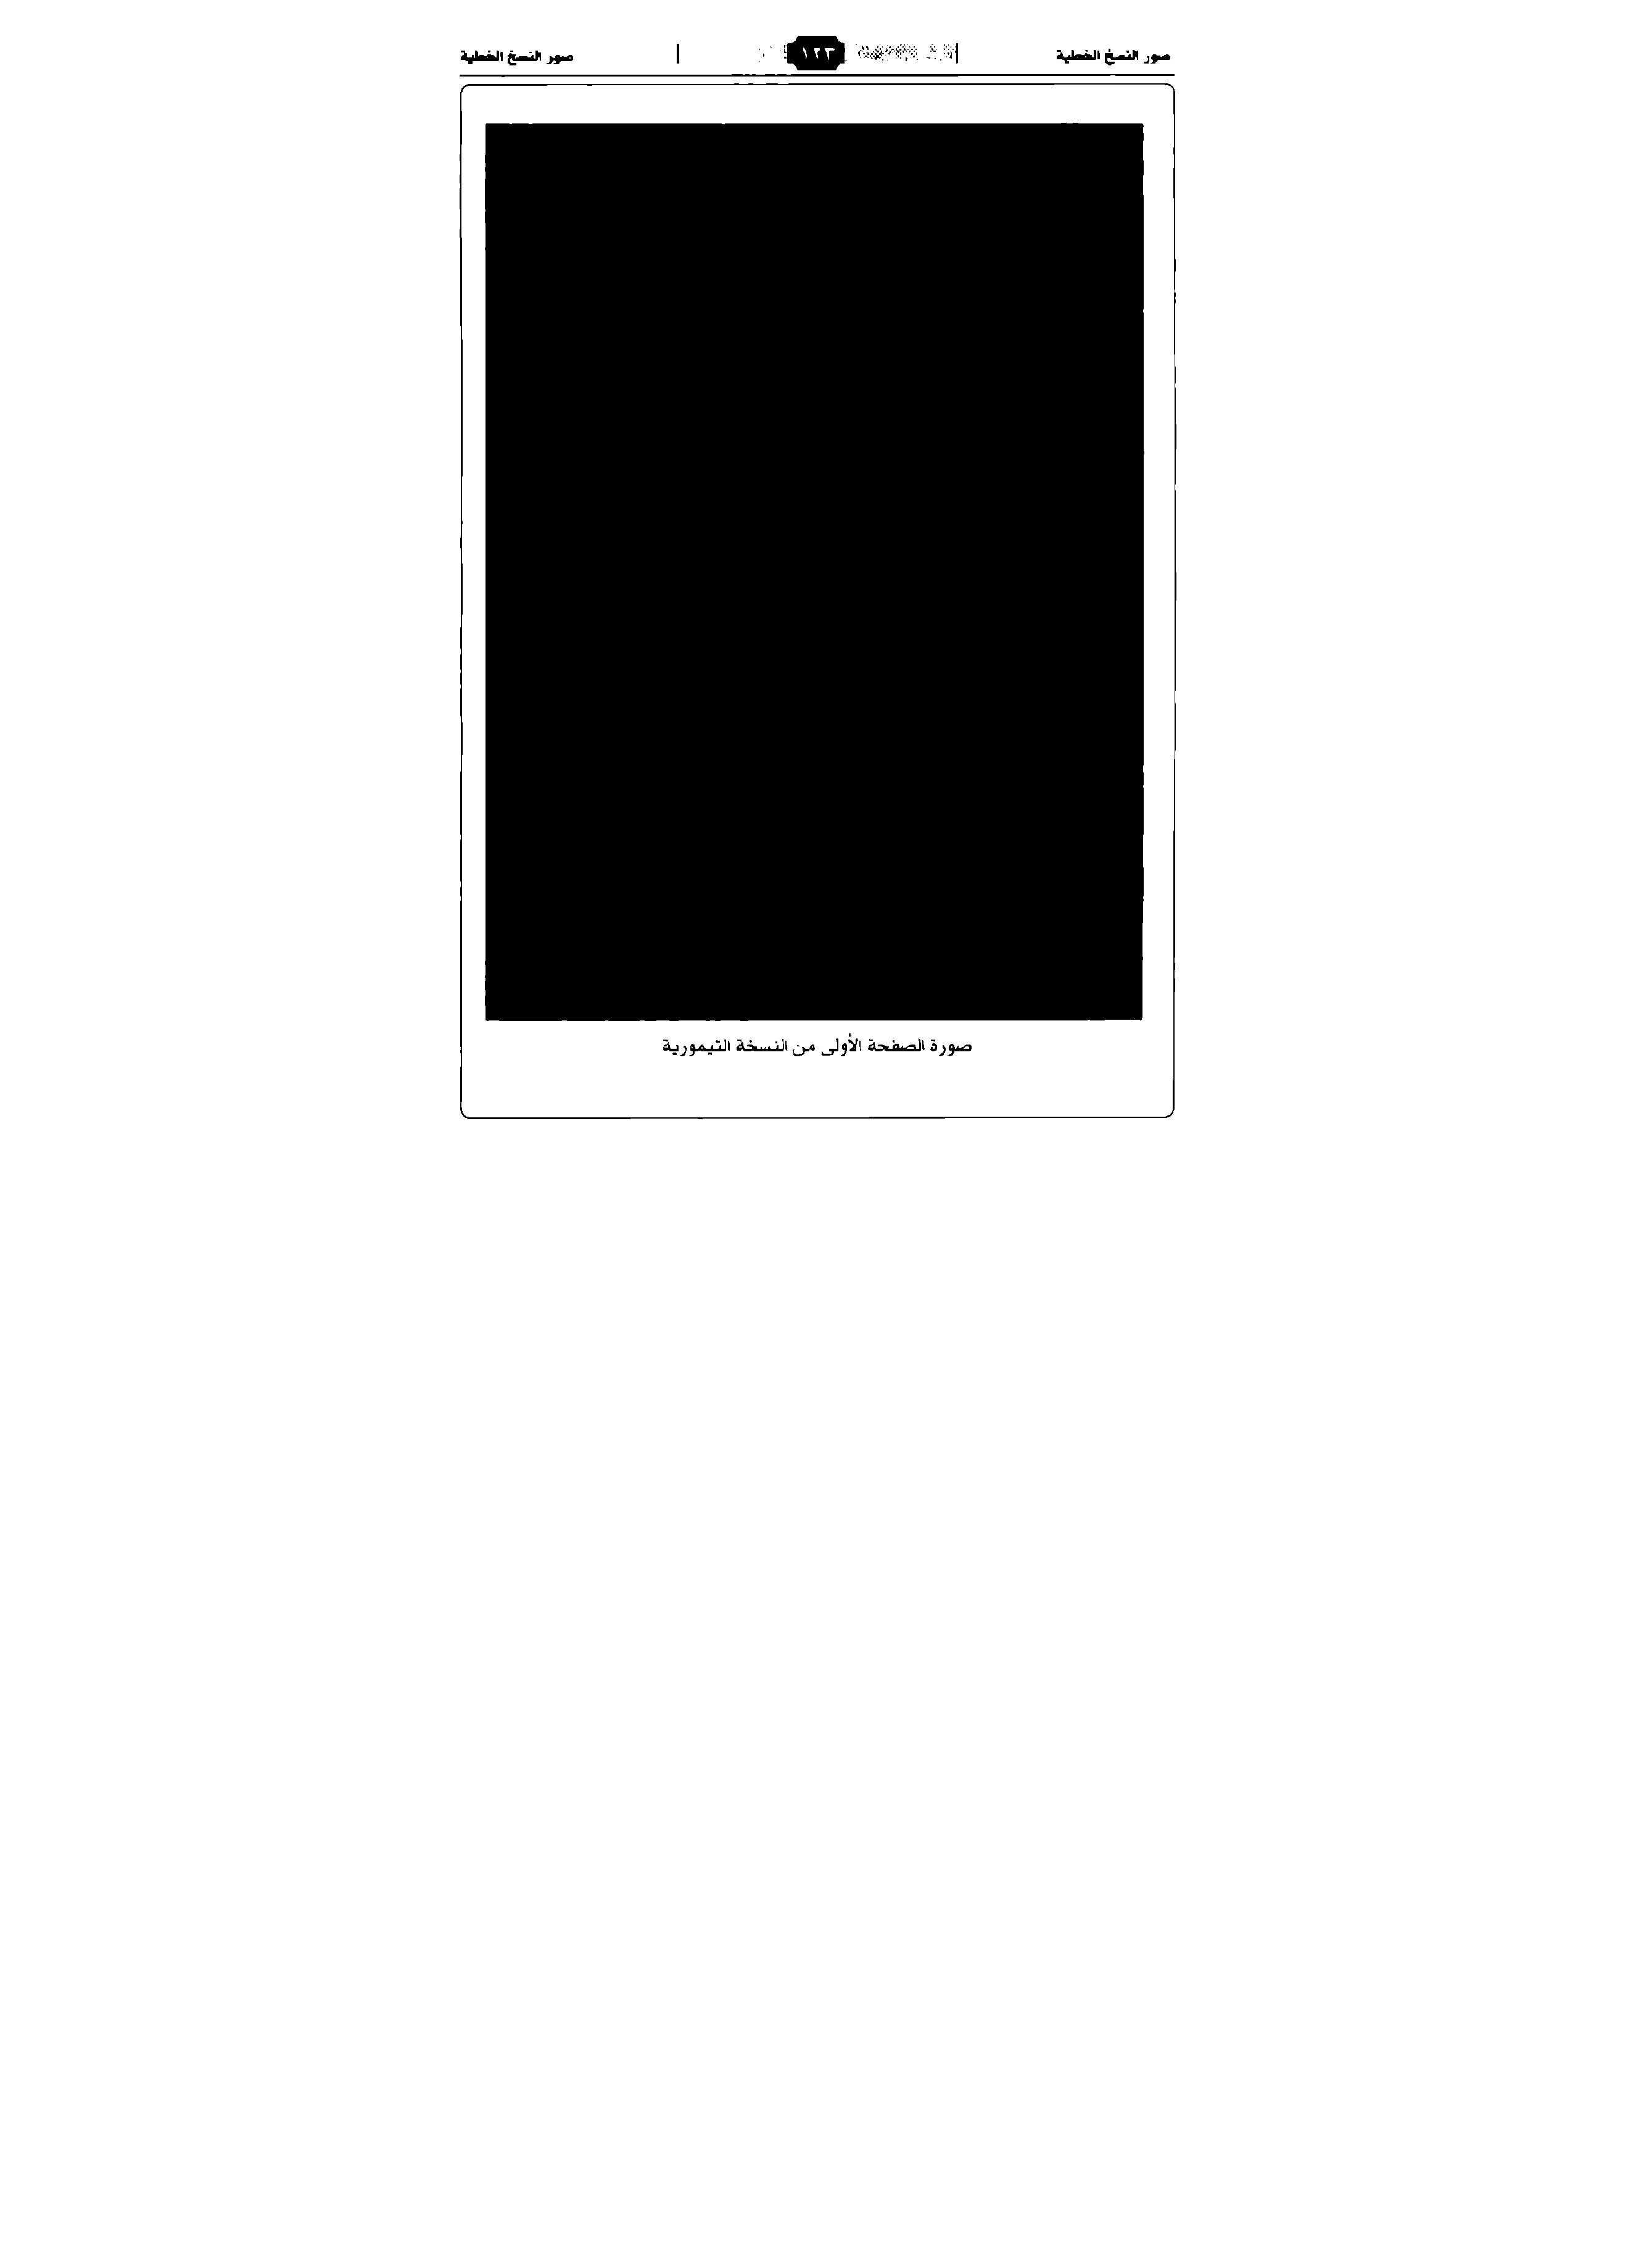 صور النسخ الخطية ١٢٣ صور النسخ الخطية
صورة الصفحة الأولى من النسخة التيمورية